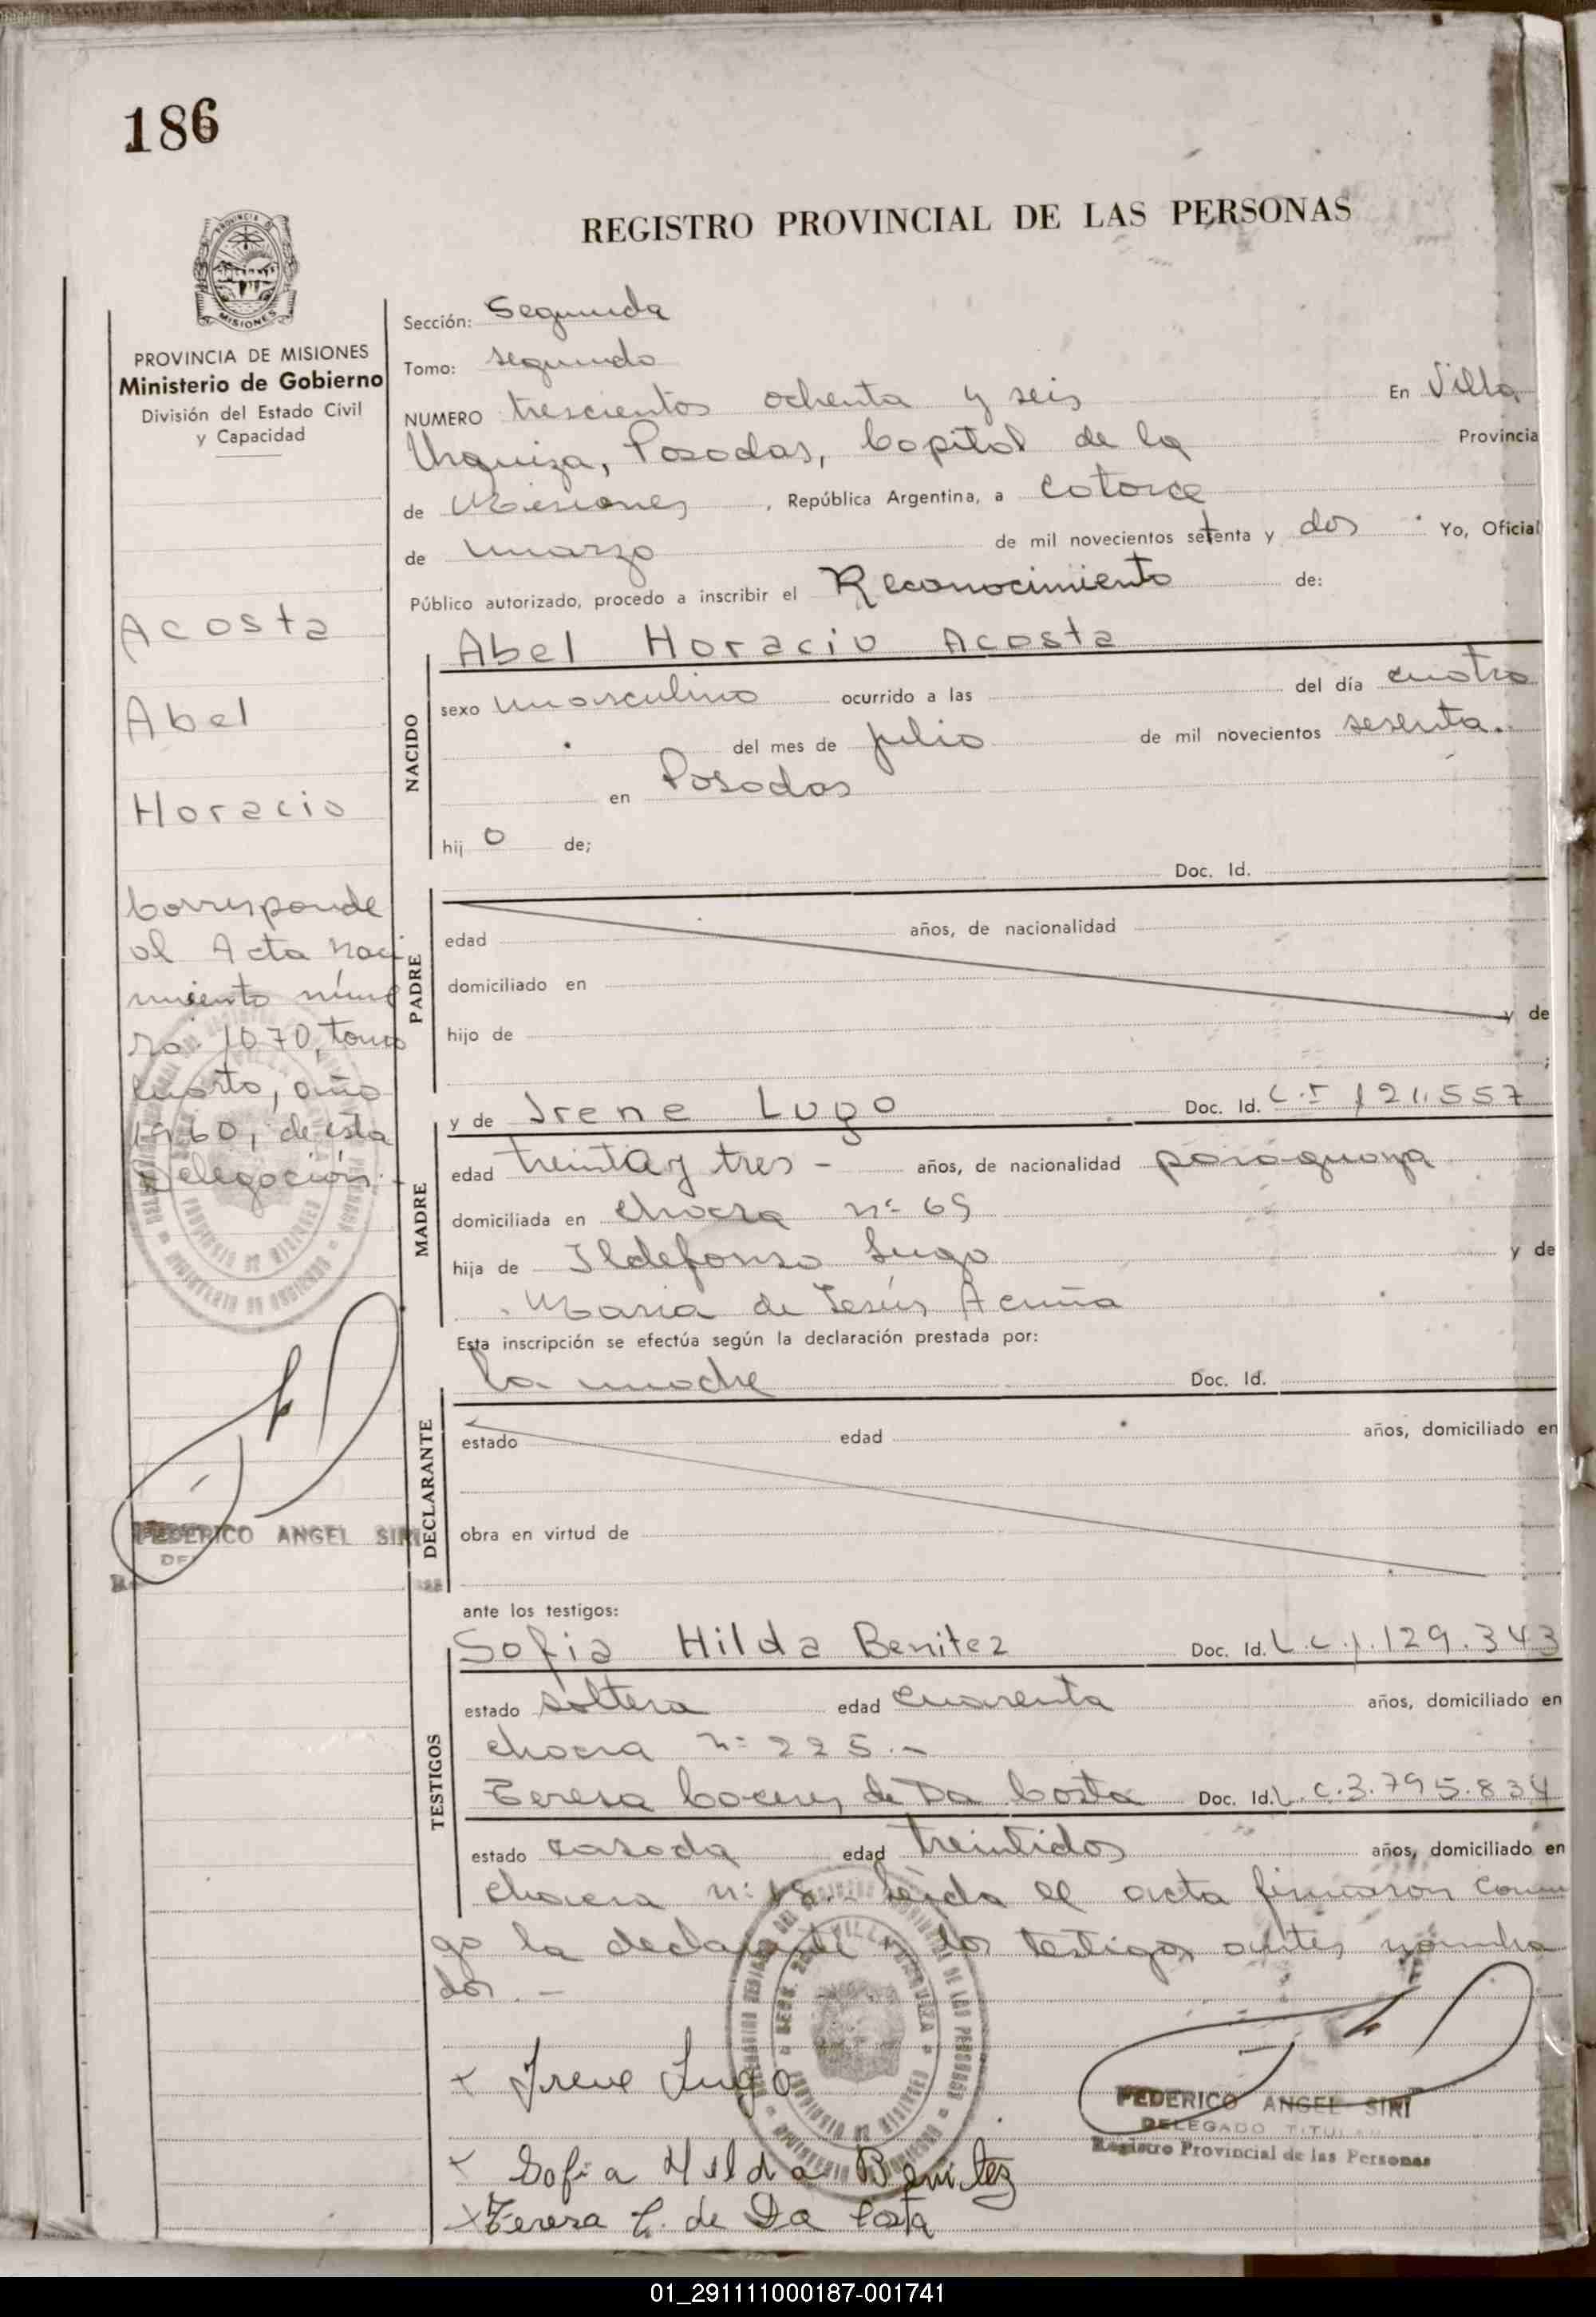 186
REGISTRO PROVINCIAL DE LAS PERSONAS
PROVINCIA DE MISIONES
Ministerio de Gobierno
División del Estado Civil
y Capacidad
Acosta
Abel
Horacio
Corresponde
al Acta naci
miento núme
ro: 1070, tomo
cuarto, año
1960, de esta
Delegación.-
FEDERICO ANGEL SIRI
Sección: Segunda
Tomo: segundo
NUMERO trescientos ochenta y seis En Villa
Urquiza, Posadas, Capital de la Provincia
de Misiones, República Argentina, a catorce
de marzo de mil novecientos setenta y dos Yo, Oficial
Público autorizado, procedo a inscribir el Reconocimiento de:
Abel Horacio Acosta
NACIDO
sexo masculino ocurrido a las del día cuatro
del mes de julio de mil novecientos sesenta.
en Posadas
hij o de;
Doc. Id.
PADRE
edad años, de nacionalidad
domiciliado en
hijo de y de
;
y de Irene Lugo Doc. Id. C.I 121.557
MADRE
edad treinta y tres - años, de nacionalidad paraguaya
domiciliada en chacra nº 69
hija de Ildefonso Lugo y de
Maria de Jesús Acuña
Esta inscripción se efectúa según la declaración prestada por:
la madre Doc. Id.
DECLARANTE
estado edad años, domiciliado en
obra en virtud de
ante los testigos:
Sofia Hilda Benitez Doc. Id. L.C.1.129.343
TESTIGOS
estado soltera edad cuarenta años, domiciliado en
chacra nº 225.-
Teresa Caceres de Da Costa Doc. Id. L.C.3.795.834
estado casada edad treintidos años, domiciliado en
chacra nº 18.- Leída el acta firmaron conmi
go la declarante y los testigos antes nombra
dos.-
Irene Lugo
Sofia Hilda Benitez
Teresa C. de Da Costa
FEDERICO ANGEL SIRI
DELEGADO TITULAR
Registro Provincial de las Personas
01_291111000187-001741